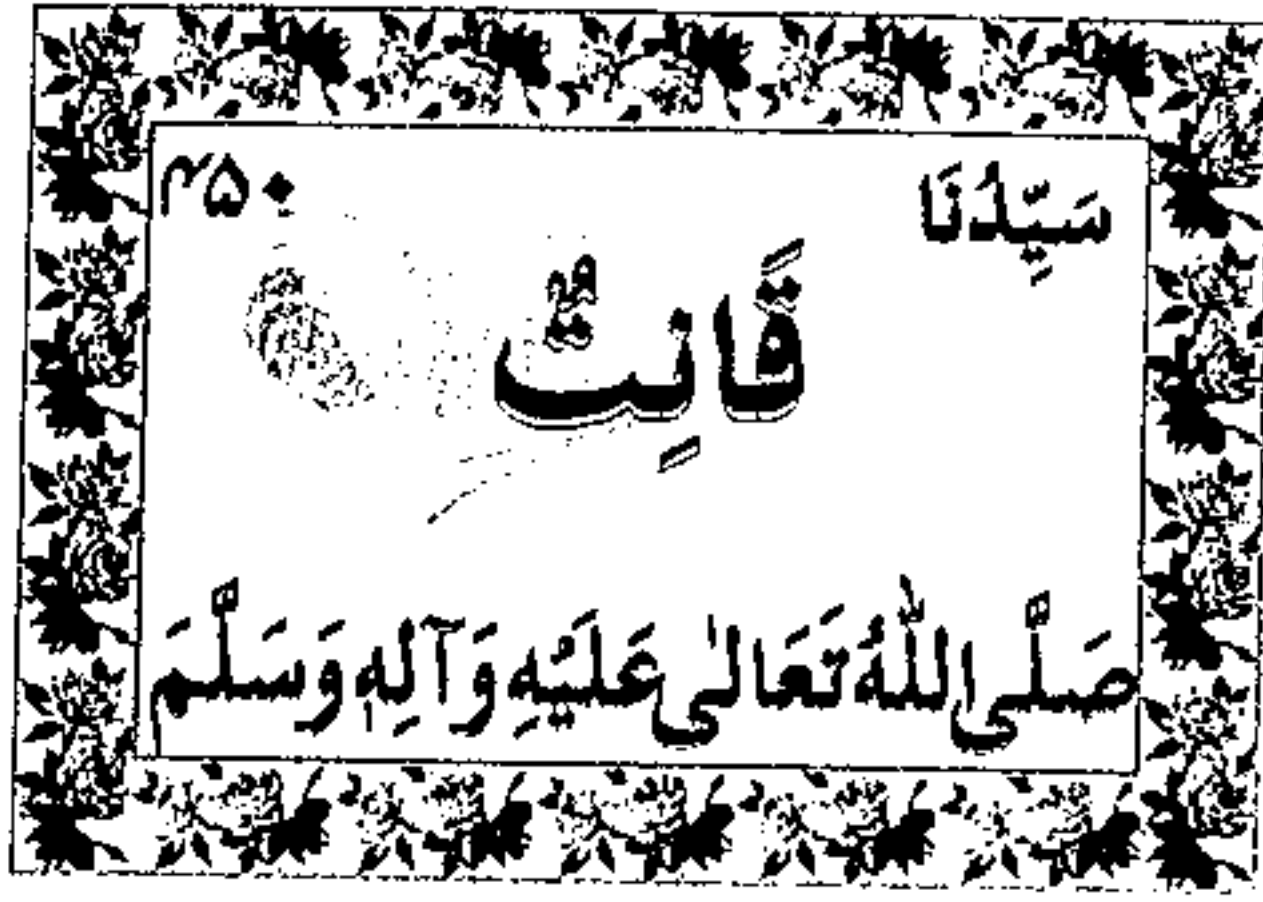 سَيِّدُنَا ۴۵۰
قَانِتٌ
صَلَّى اللّٰهُ تَعَالٰى عَلَيْهِ وَآلِهٖ وَسَلَّمَ